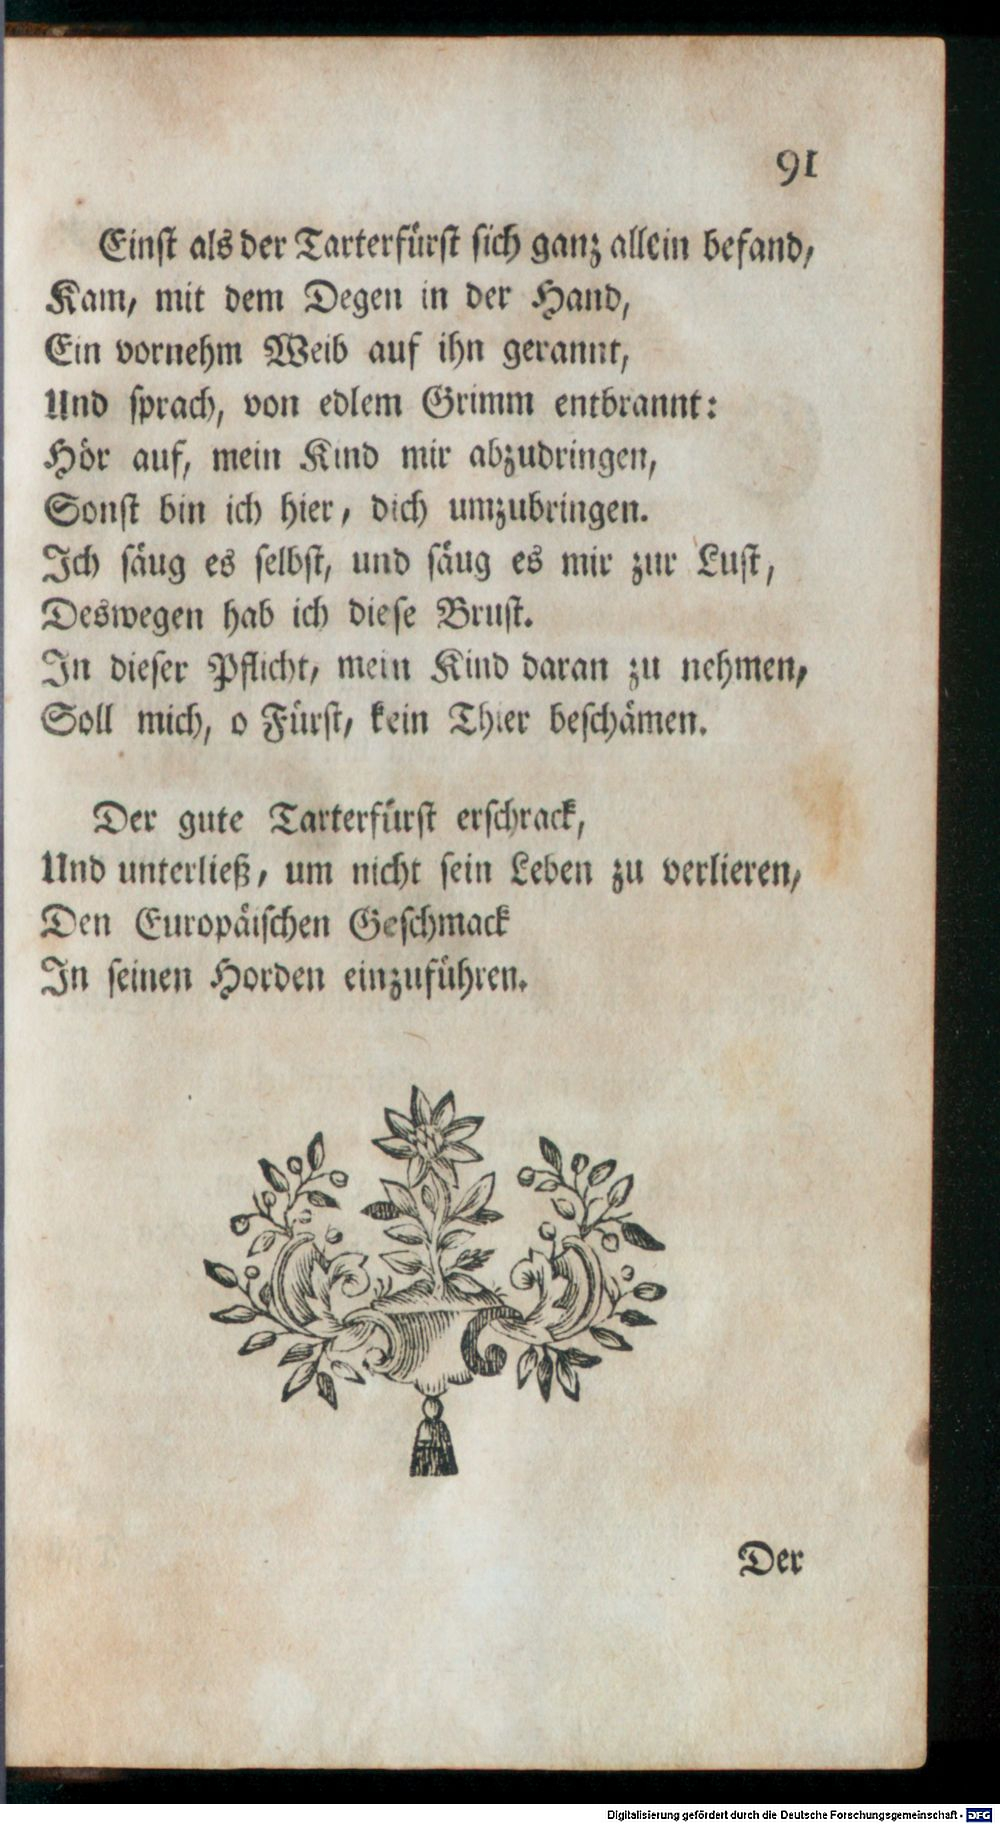 91
Einst als der Tarterfürst sich ganz allein befand,
Kam, mit dem Degen in der Hand,
Ein vornehm Weib auf ihn gerannt,
Und sprach, von edlem Grimm entbrannt:
Hör auf, mein Kind mir abzudringen,
Sonst bin ich hier, dich umzubringen.
Ich säug es selbst, und säug es mir zur Lust,
Deswegen hab ich diese Brust.
In dieser Pflicht, mein Kind daran zu nehmen,
Soll mich, o Fürst, kein Thier beschämen.
Der gute Tarterfürst erschrack,
Und unterließ, um nicht sein Leben zu verlieren,
Den Europäischen Geschmack
In seinen Horden einzuführen.
Der
Digitalisierung gefördert durch die Deutsche Forschungsgemeinschaft - DFG